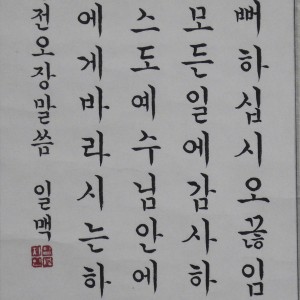 뻐하십시오끊임
모든일에감사하
스도예수님안에
에게바라시는하
전오장말씀 일맥